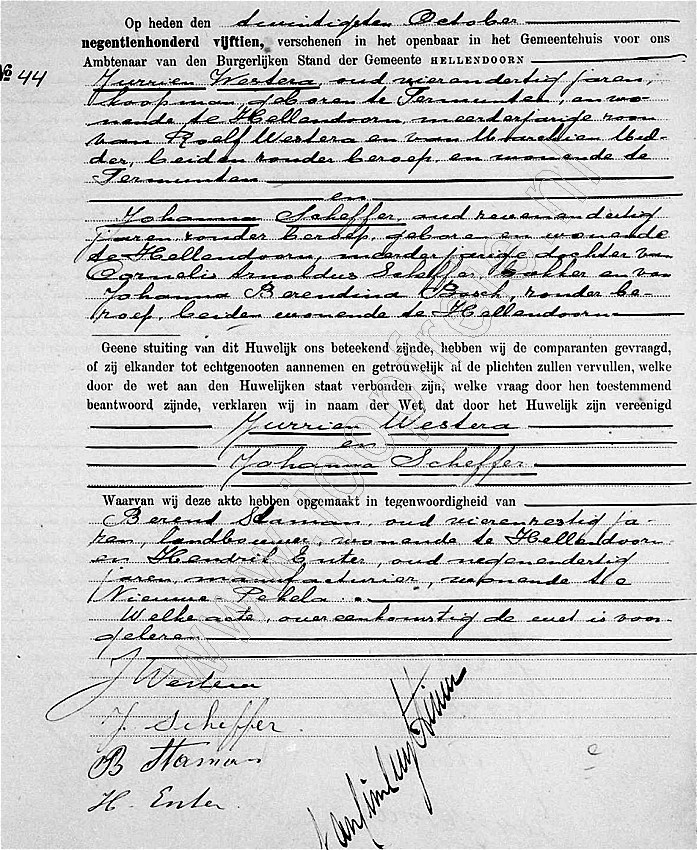 Op heden den twintigsten October
negentienhonderd vijftien, verschenen in het openbaar in het Gemeentehuis voor ons
Ambtenaar van den Burgerlijken Stand der Gemeente HELLENDOORN
№ 44
Jurrien Westera, oud vierendertig jaren,
koopman, geboren te Termunten, en wo-
nende te Hellendoorn, meerderjarige zoon
van Roelf Westera en van Marchien Mul-
der, beiden zonder beroep, en wonende te
Termunten
en
Johanna Scheffer, oud zevenendertig
jaren, zonder beroep, geboren en wonende
te Hellendoorn, meerderjarige dochter van
Cornelis Arnoldus Scheffer, bakker en van
Johanna Berendina Bosch, zonder be-
roep, beiden wonende te Hellendoorn
Geene stuiting van dit Huwelijk ons beteekend zijnde, hebben wij de comparanten gevraagd,
of zij elkander tot echtgenooten aannemen en getrouwelijk al de plichten zullen vervullen, welke
door de wet aan den Huwelijken staat verbonden zijn, welke vraag door hen toestemmend
beantwoord zijnde, verklaren wij in naam der Wet, dat door het Huwelijk zijn vereenigd
Jurrien Westera
en
Johanna Scheffer
Waarvan wij deze akte hebben opgemaakt in tegenwoordigheid van
Berend Staman, oud vierenzestig ja-
ren, landbouwer, wonende te Hellendoorn
en Hendrik Enter, oud negenendertig
jaren, manufacturier, wonende te
Nieuwe-Pekela.
Welke acte, overeenkomstig de wet is voor-
gelezen
J Westera
J. Scheffer.
B Staman
H. Enter.